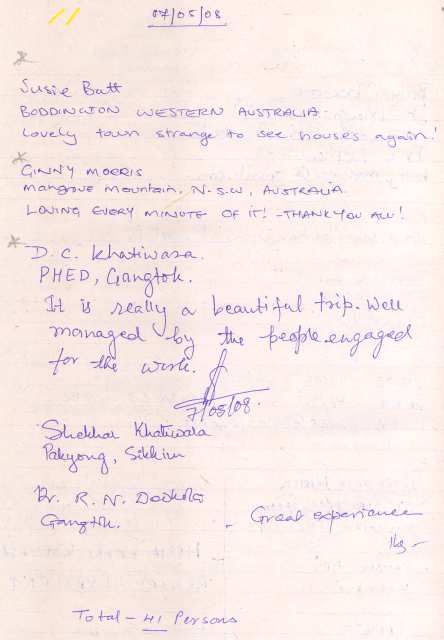 07/05/08
Susie Butt
BODDINGTON WESTERN AUSTRALIA
Lovely town strange to see houses again!
GINNY MORRIS
Mangrove Mountain, N.S.W, AUSTRALIA.
LOVING EVERY MINUTE OF IT! - THANK YOU ALL!
D. C. Khatiwara.
PHED, Gangtok.
It is really a beautiful trip. Well
managed by the people engaged
for the work.
7/05/08.
Shekhar Khatiwala
Pakyong, Sikkim
Dr. R. N.
Gangtok.
- Great experience
Total - 41 Persons